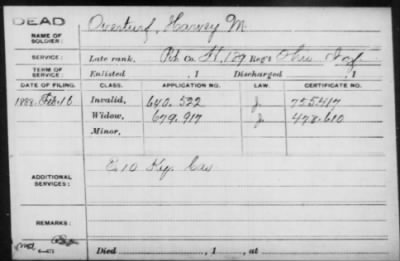 DEAD
NAME OF SOLDIER: Overturf, Harvey M.
SERVICE: Late rank, Pvt Co. H, 189 Reg't Ohio Inf
TERM OF SERVICE: Enlisted , 1 Discharged , 1
DATE OF FILING. CLASS. APPLICATION NO. LAW. CERTIFICATE NO.
1888. Feb. 10 Invalid, 640.522 J. 755417
Widow, 679.917 J. 478.610
Minor,
ADDITIONAL SERVICES: E 10 Ky. Cav
REMARKS:
Died , 1 , at